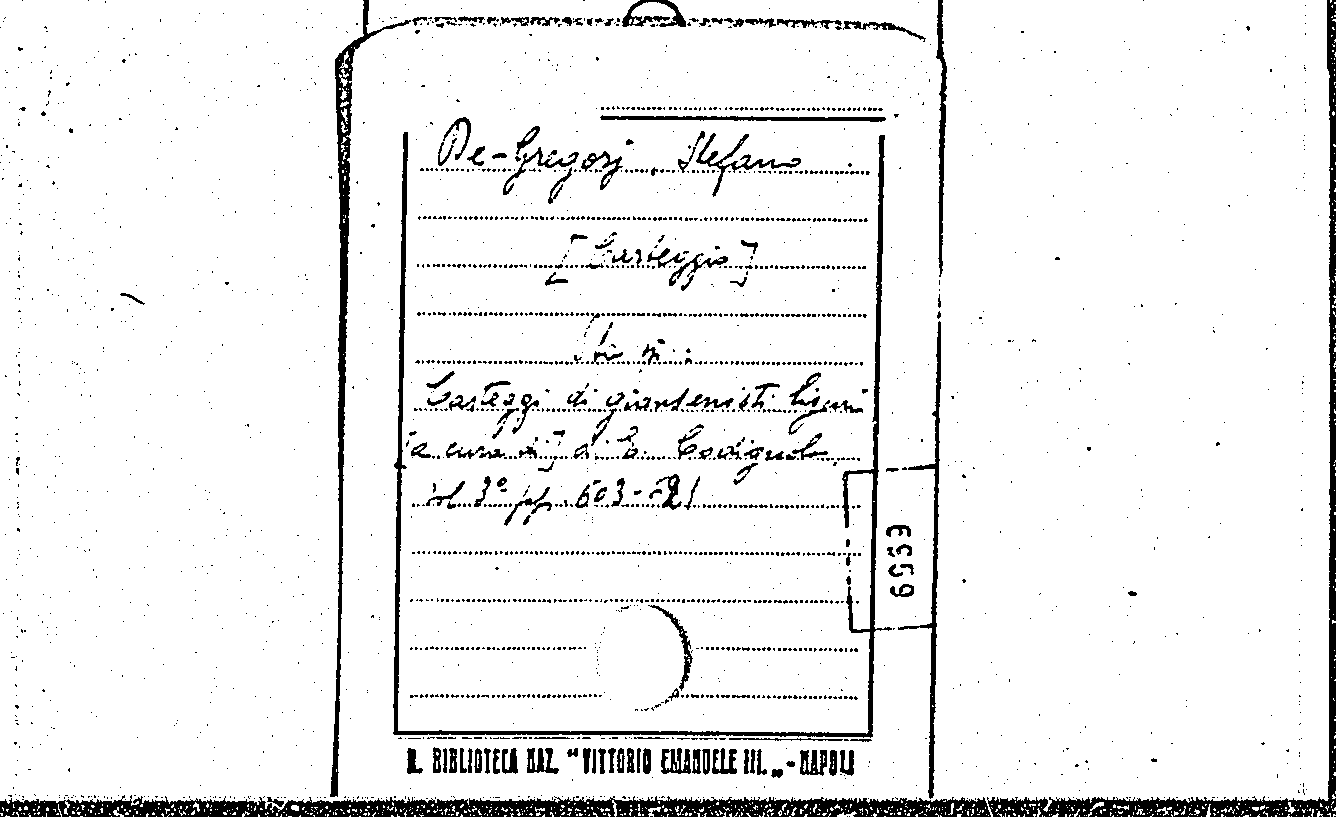 De-Gregorj, Stefano
[Carteggio]
Sta in:
Carteggi di giansenisti liguri
[a cura di] di E. Codignola,
vol 3º pp. 503-521
6559
R. BIBLIOTECA NAZ. "VITTORIO EMANUELE III. „ - NAPOLI